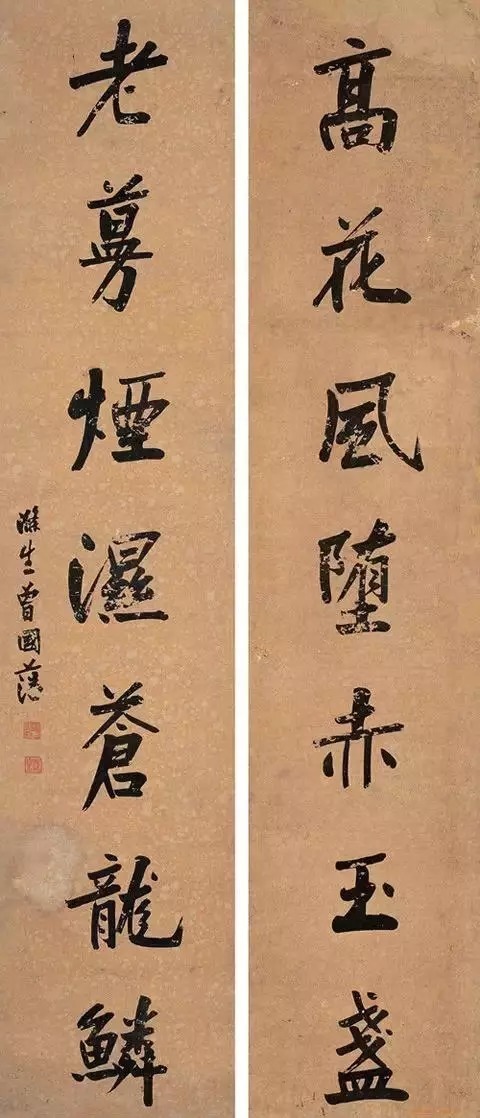 高花風堕赤玉盞
老蔓煙濕蒼龍鱗
滌生曾國藩